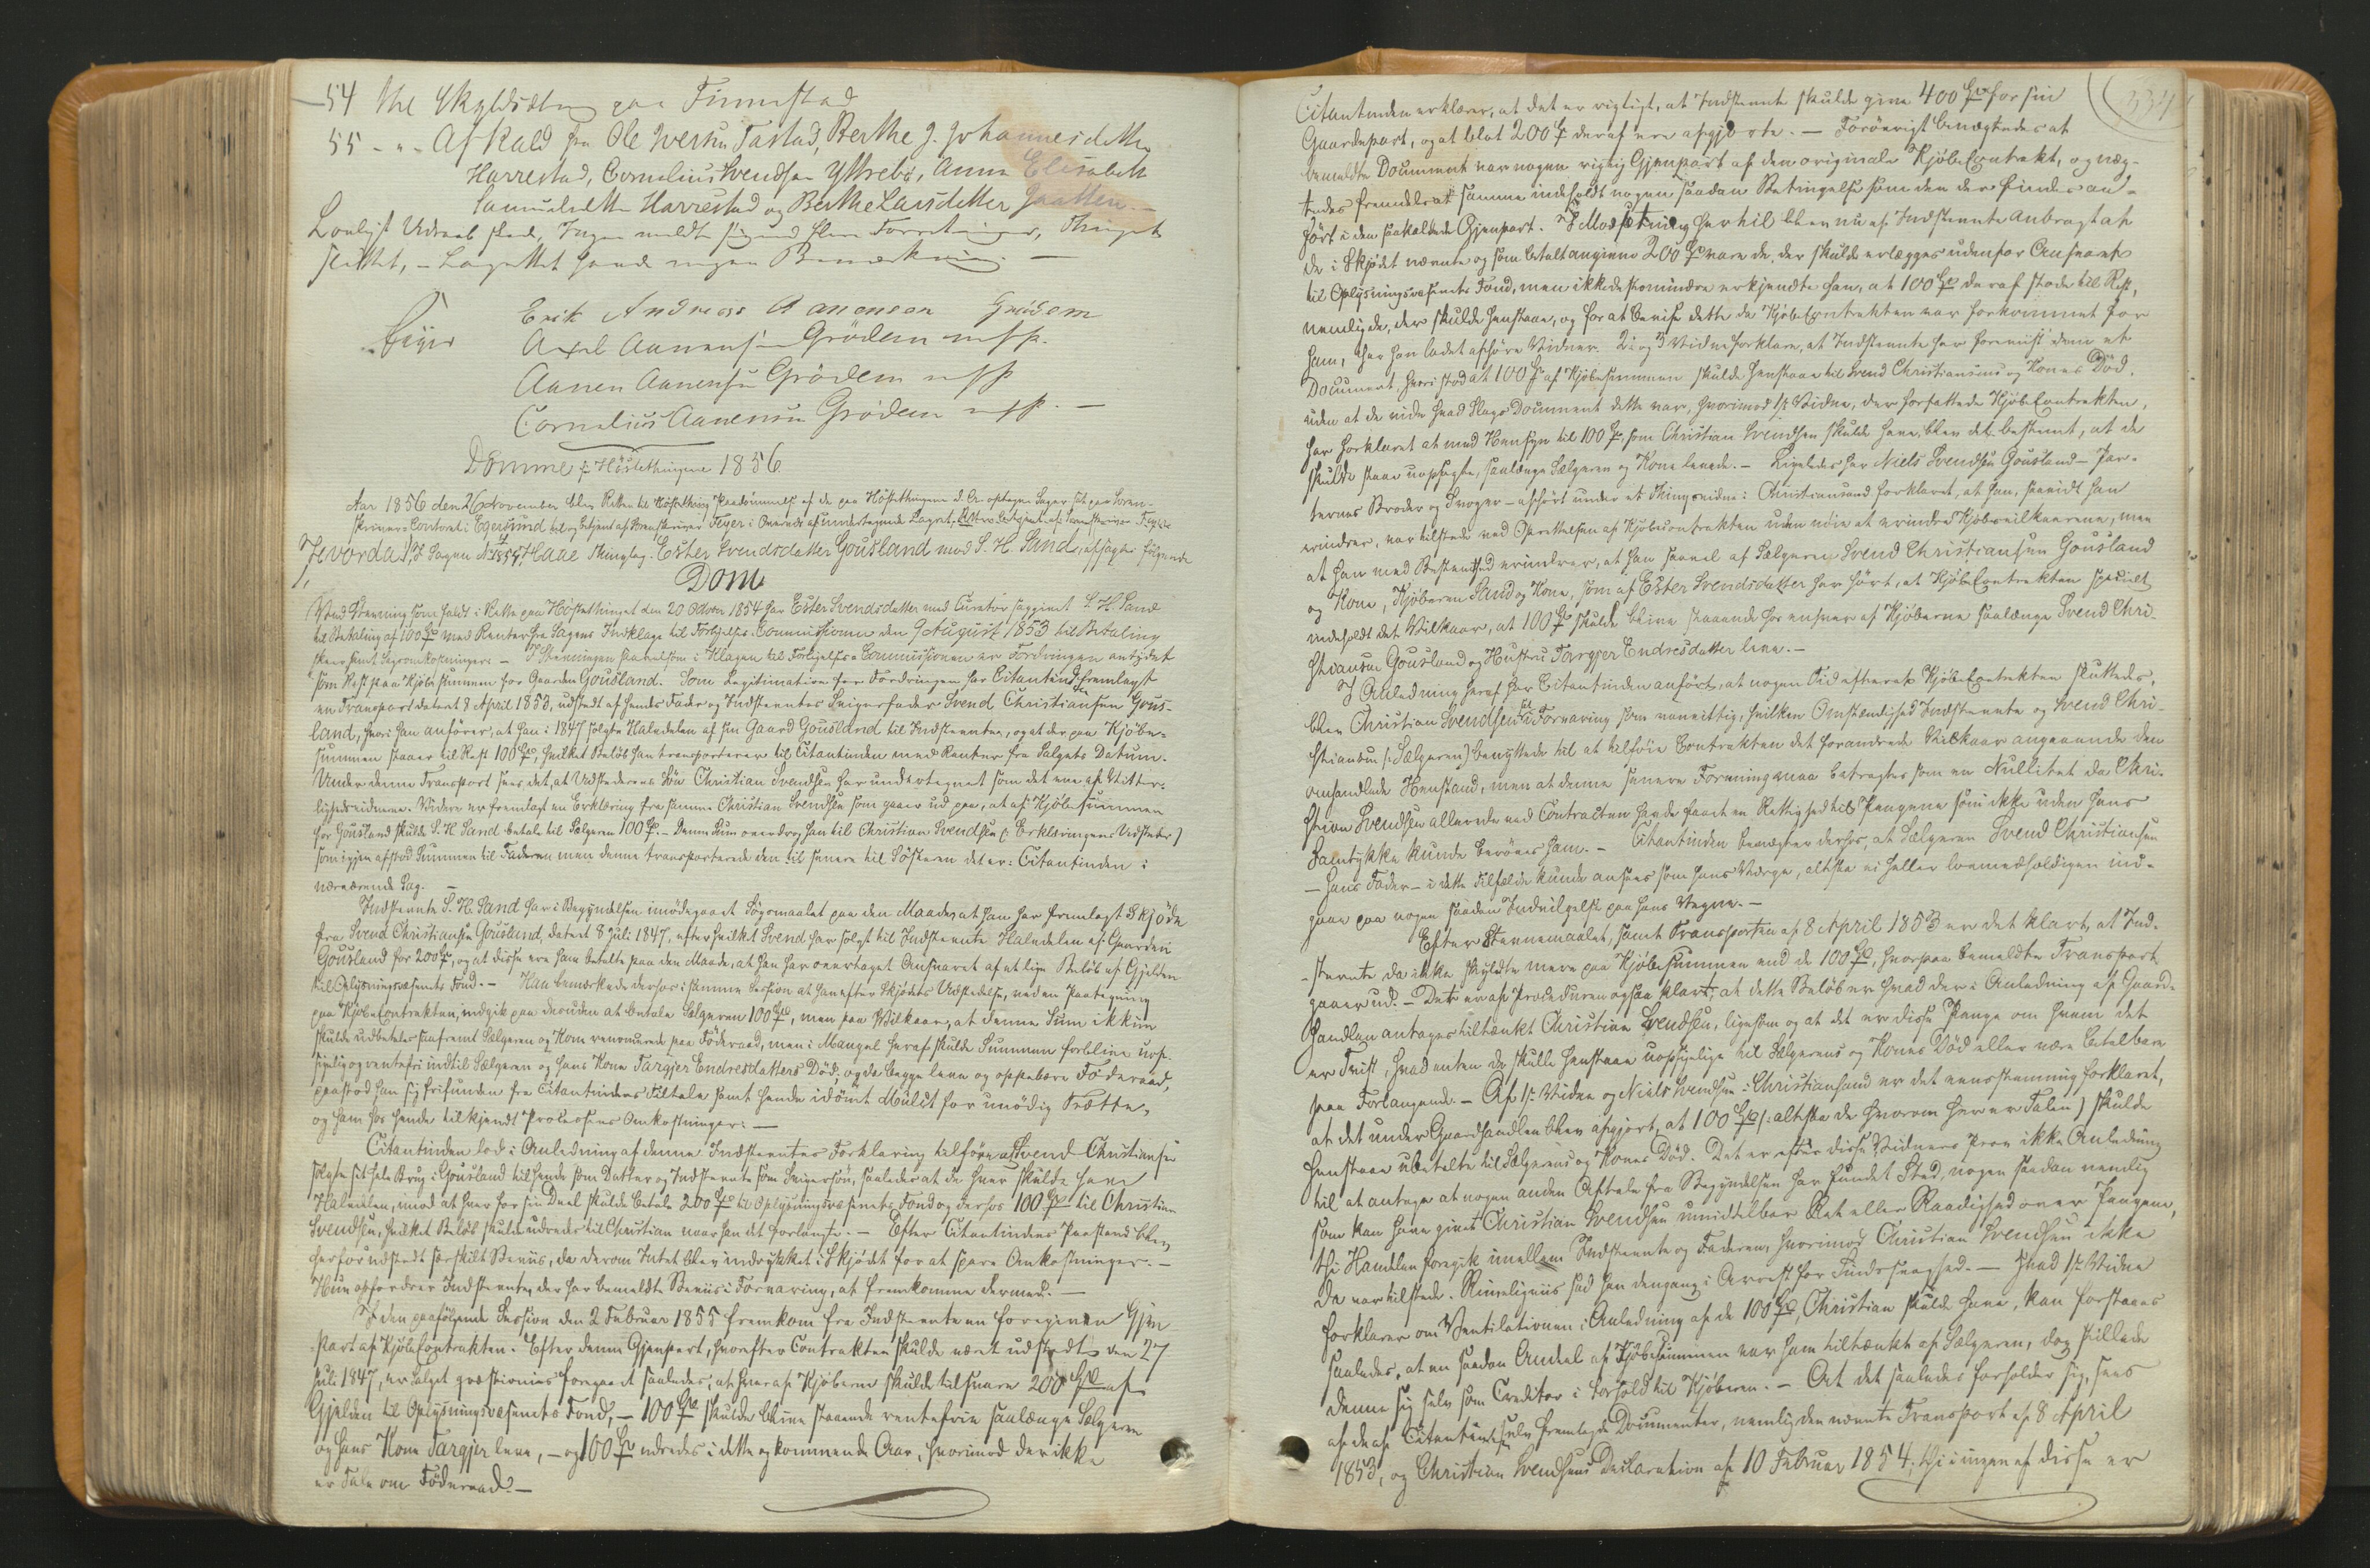 54 Thl Skyldsætn paa Finnestad
55 - " - Afkald fra Ole Iversen Tastad, Berthe J. Johannesdatter
Harrestad, Cornelius Svendsen Ystrebø, Anna Elisabeth
Samuelsdatter Harrestad og Berthe Larsdatter Gratten. -
Lovligt Udraab skede, Ingen meldte sig med flere Forretninger, Thinget
sluttet, - Lagrettet havde ingen Bemærkning. -
Feyer
Erik Andreas Aanensen Grödem
Axel Aanensen Grödem m f p.
Aanen Aanensen Grödem m f p
Cornelius Aanensen Grödem m f p. -
Domme fra Høstethingene 1856.
Aar 1856 den 26 November blev Retten til Høstething Paadömmelse af de paa Høstethingene d. A. optagne Sager sat paa Soren-
skriver-Contoret i Egersund og betjent af Sorenskriver Feyer i Overvær af undertegnede Lagret,
Hvorda! I Sagen No 4/1854, Haae Thinglag. Ester Svendsdatter Gousland mod S. H. Sand, afsagdes følgende
Dom
Ved Stevning som faldt i Rette paa Høstethinget den 20 October 1854 har Ester Svendsdatter med Curator sagsøgt S. H. Sand
til Betaling af 100 Spd med Renter fra Sagens Indklage til Forligelses-Commissionen den 9 August 1853 til Betaling
skeer samt Sagsomkostninger. - I Stevningen saavelsom i Klagen til Forligelses-Commissionen er Fordringen antydet
som Rest paa Kjøbesummen for Gaarden Gousland. Som Legitimation for Fordringen har Citantinden fremlagt
en Transport dateret 8 April 1853, udstedt af hendes Fader og Indstevntes Svigerfader Svend Christiansen Gous-
land, hvori han anfører, at han i 1847 solgte Halvdelen af sin Gaard Gousland til Indstevnte, og at der paa Kjøbe-
summen staaer til Rest 100 Spd, hvilket Beløb han transporterer til Citantinden med Renter fra Salgets Datum.
Under denne Transport sees det, at Udstederens Søn Christian Svendsen har undertegnet som det ene af Vitter-
lighedsvidnerne. Videre er fremlagt en Erklæring fra samme Christian Svendsen som gaaer ud paa, at af Kjøbesummen
for Gousland skulde S. H. Sand betale til Sælgeren 100 Spd. - Denne Sum overdrog han til Christian Svendsen (: Erklæringens Udsteder)
som igjen afstod Summen til Faderen men denne transporterede den til senere til Søsteren det er: Citantinden i
nærværende Sag. -
Indstevnte S. H. Sand har i Begyndelsen imödegaaet Søgsmaalet paa den Maade, at han har fremlagt Skjøde
fra Svend Christiansen Gousland, dateret 8 Juli 1847, efter hvilket Svend har solgt til Indstevnte Halvdelen af Gaarden
Gousland for 200 Spd, og at disse ere ham betalte paa den Maade, at han har overtaget Ansvaret af et lige Beløb af Gjelden
til Oplysningsvæsenets Fond. - Han bemærkede derhos i samme Session at han efter Skjødets Udstedelse, ved en Paategning
paa Kjøbecontrakten, indgik paa desuden at betale Sælgeren 100 Spd, men paa Vilkaar, at denne Sum ikkun
skulde udbetales saafremt Sælgeren og Kone renoncerede paa Föderaad, men i Mangel heraf skulde Summen forblive uop-
sigelig og rentefri indtil Sælgeren og hans Kone Targjer Endresdatters Död, og da begge leve og oppebære Föderaad,
paastod han sig frifunden fra Citantindens Tiltale samt hende idömt Mulct for unödig Trætte,
og ham hos hende tilkjendt Processens Omkostninger. -
Citantinden lod i Anledning af denne Indstevntes Forklaring tilföre at Svend Christiansen
solgte sit hele Brug i Gousland til hende som Datter og Indstevnte som Svigersøn, saaledes at de hver skulde have
Halvdelen, imod at hver for sin Deel skulde betale 200 Spd til Oplysningsvæsenets Fond og derhos 100 Spd til Christian
Svendsen, hvilket Beløb skulde udredes til Christian naar han det forlangte. - Efter Citantindens Paastand blev
herfor udstedt særskilt Beviis, da derom Intet blev indrykket i Skjødet for at spare Omkostninger. -
Hun opfordrer Indstevnte, der har bemeldte Beviis i Forvaring, at fremkomme dermed. -
I den paafölgende Session den 2 Februar 1855 fremkom fra Indstevnte en foregiven Gjen-
part af Kjøbecontrakten. Efter denne Gjenpart, hvorefter Contrakten skulde været udstedt den 27
Juli 1847, er Salget qvæstionis foregaaet saaledes, at hver af Kjøberne skulde tilsvare 200 Spd af
Gjelden til Oplysningsvæsenets Fond, - 100 Spd skulde blive staaende rentefrie saalænge Sælgeren
og hans Kone Targjer leve, - og 100 Spd udredes i dette og kommende Aar, hvorimod der ikke
er Tale om Föderaad. -
334
Citantinden erklærer, at det er rigtigt, at Indstevnte skulde give 400 Spd for sin
Gaardepart, og at blot 200 Spd deraf ere afgjorte. - Forövrigt benægtedes at
bemeldte Document var nogen rigtig Gjenpart af den originale Kjøbecontrakt, og næg-
tedes fremdeles at samme indeholdt nogen saadan Betingelse som den der findes an-
fört i den saakaldede Gjenpart. I Modsætning hertil blev nu af Indstevnte anbragt at
de i Skjødet nævnte og som betalt angivne 200 Spd vare de, der skulde erlægges udenfor Ansvaret
til Oplysningsvæsenets Fond, men ikkedestomindre erkjendte han, at 100 Spd deraf stode til Rest,
nemlig de, der skulde henstaae, og for at bevise dette da Kjøbecontrakten var forkommet for
ham, har han ladet afhøre Vidner. 2det og 3 Vidne forklare, at Indstevnte har foreviist dem et
Document, hvori stod at 100 Spd af Kjøbesummen skulde henstaae til Svend Christiansens og Kones Död,
uden at de vide hvad Slags Document dette var, hvorimod 1st Vidne, der forfattede Kjøbecontrakten,
har forklaret at med Hensyn til 100 Spd, som Christian Svendsen skulde have, blev det bestemt, at de
skulde staae uopsagte, saalænge Sælgeren og Kone levede. - Ligeledes har Niels Svendsen Gousland - Par-
ternes Broder og Svoger - afhørt under et Thingsvidne i Christiansand forklaret, at han, saavidt han
erindrer, var tilstede ved Oprettelsen af Kjøbecontrakten uden nøie at erindre Kjøbevilkaarene, men
at han med Bestemthed erindrer, at han saavel af Sælgeren Svend Christiansen Gousland
og Kone, Kjøberen Sand og Kone, som af Ester Svendsdatter har hört, at Kjøbecontrakten specielt
indeholdt det Vilkaar, at 100 Spd skulde blive staaende hos enhver af Kjøberne saalænge Svend Chri-
stiansen Gousland og Hustru Targjer Endresdatter leve. -
I Anledning heraf har Citantinden anført, at nogen Tid efterat Kjøbecontrakten sluttedes,
blev Christian Svendsen sat i Forvaring som vanvittig, hvilken Omstændighed Indstevnte og Svend Chri-
stiansen (: Sælgeren) benyttede til at tilföie Contrakten det forandrede Vilkaar angaaende den
omhandlede Henstand, men at denne senere Forening maa betragtes som en Nullitet da Chri-
stian Svendsen allerede ved Contracten havde faaet en Rettighed til Pengene som ikke uden hans
Samtykke kunde beröves ham. - Citantinden benægter derhos, at Sælgeren Svend Christiansen
- hans Fader - i dette Tilfælde kunde ansees som hans Værge, altsaa ei heller lovmedholdigen ind-
gaae paa nogen saadan Indvilgelse paa hans Vegne. -
Efter Stevnemaalet, samt Transporten af 8 April 1853 er det klart, at Ind-
stevnte da ikke skyldte mere paa Kjøbesummen end de 100 Spd, hvorpaa bemeldte Transport
gaaer ud. - Det er af Proceduren ogsaa klart, at dette Beløb er hvad der i Anledning af Gaard-
handlen antages tiltænkt Christian Svendsen, ligesom og at det er disse Penge om hvem det
er Tvist, hvad enten de skulle henstaae uopsigelige til Sælgerens og Kones Död eller være betalbare
paa Forlangende. - Af 1st Vidne og Niels Svendsen i Christiansand er det eensstemmig forklaret,
at det under Gaardhandlen blev afgjort, at 100 Spd (: altsaa de hvorom her er Talen) skulde
henstaae ubetalte til Sælgerens og Kones Död. Det er efter disse Vidners Prov ikke Anledning
til at antage at nogen anden Aftale fra Begyndelsen har fundet Sted, nogen saadan nemlig
som kan have givet Christian Svendsen umiddelbar Ret eller Raadighed over Pengene,
thi Handlen foregik imellem Indstevnte og Faderen, hvorimod Christian Svendsen ikke
da var tilstede. Rimeligviis sad han dengang i Arrest for Sindssvaghed. - Hvad 1st Vidne
forklarer om Ventilationen i Anledning af de 100 Spd, Christian skulde have, kan forstaaes
saaledes, at en saadan Andeel af Kjøbesummen var ham tiltænkt af Sælgeren, dog stillede
denne sig selv som Creditor i Forhold til Kjøberen. - At det saaledes forholder sig, sees
af de af Citantinden selv fremlagde Documenter, nemlig den nævnte Transport af 8 April
1853, og Christian Svendsens Declaration af 10 Februar 1854, thi i ingen af disse er